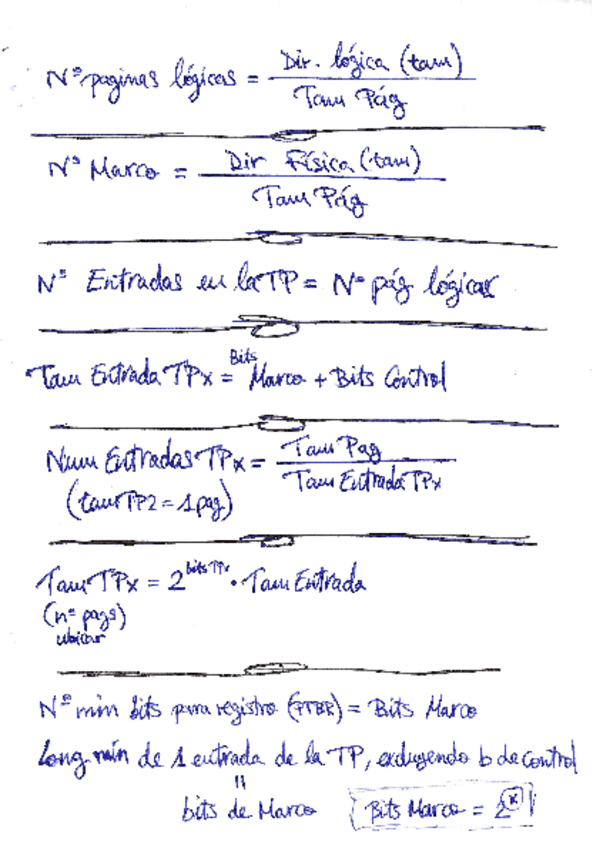 Nº paginas lógicas = Dir. lógica (tam)
Tam Pág
Nº Marco = Dir Física (tam)
Tam Pág
Nº Entradas en la TP = Nº pág lógicas
Tam Entrada TPx = Bits Marco + Bits Control
Num Entradas TPx = Tam Pag
Tam Entrada TPx
(tam TP2 = 1 pag)
Tam TPx = 2^bits TPx · Tam Entrada
(nº pags)
ubicar
Nº min bits para registro (PTBR) = Bits Marco
long min de 1 entrada de la TP, excluyendo b de control
=
bits de Marco
Bits Marco = 2^x